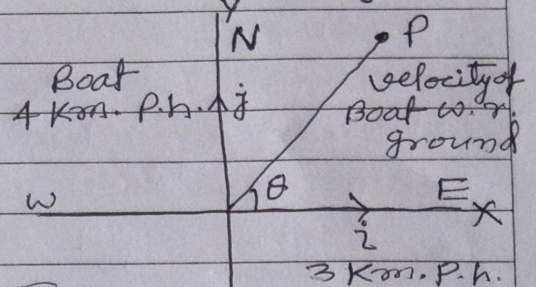 Y
N
P
Boat
4 Km. P.h.
j
velocity of
Boat w.r.
ground
θ
W
E
X
i
3 Km. P.h.